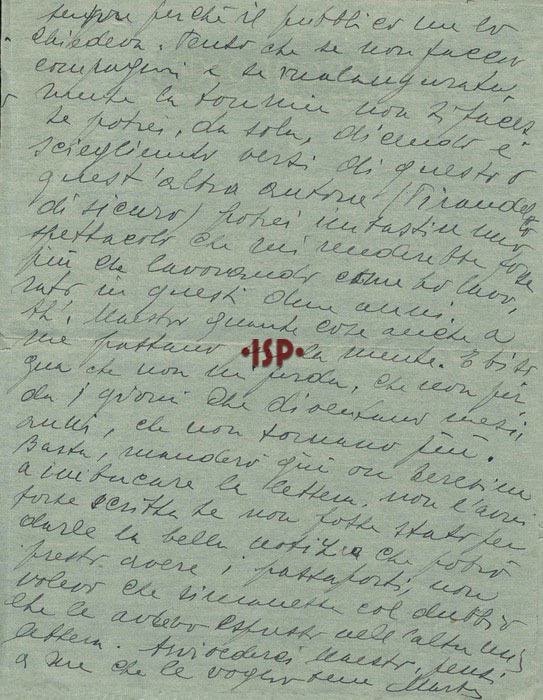 sempre perchè il pubblico me lo
chiedeva. Penso che se non faccio
compagnia e se malaugurata
mente la tournée non si facesse
se potrei, da sola, dicendo e
sciegliendo versi di questo o
quest'altro autore (Pirandello
di sicuro) potrei imbastire uno
spettacolo che mi renderebbe forse
più che lavorando come ho lavo,
rato in questi due anni.
Ah! Maestro quante cose anche a
me passano la mente. E biso
gna che non mi perda, che non per
da i giorni che diventano mesi,
anni, che non tornano più.
Basta, manderò giù
a imbucare la lettera. non l'avrei
forse scritta se non fosse stato per
darle la bella notizia che potrò
presto avere i passaporti, non
volevo che rimanesse col dubbio
che le avevo espresso nell'altra mia
lettera. Arrivederci Maestro, pensi
a me che le voglio bene Marta
·ISP·